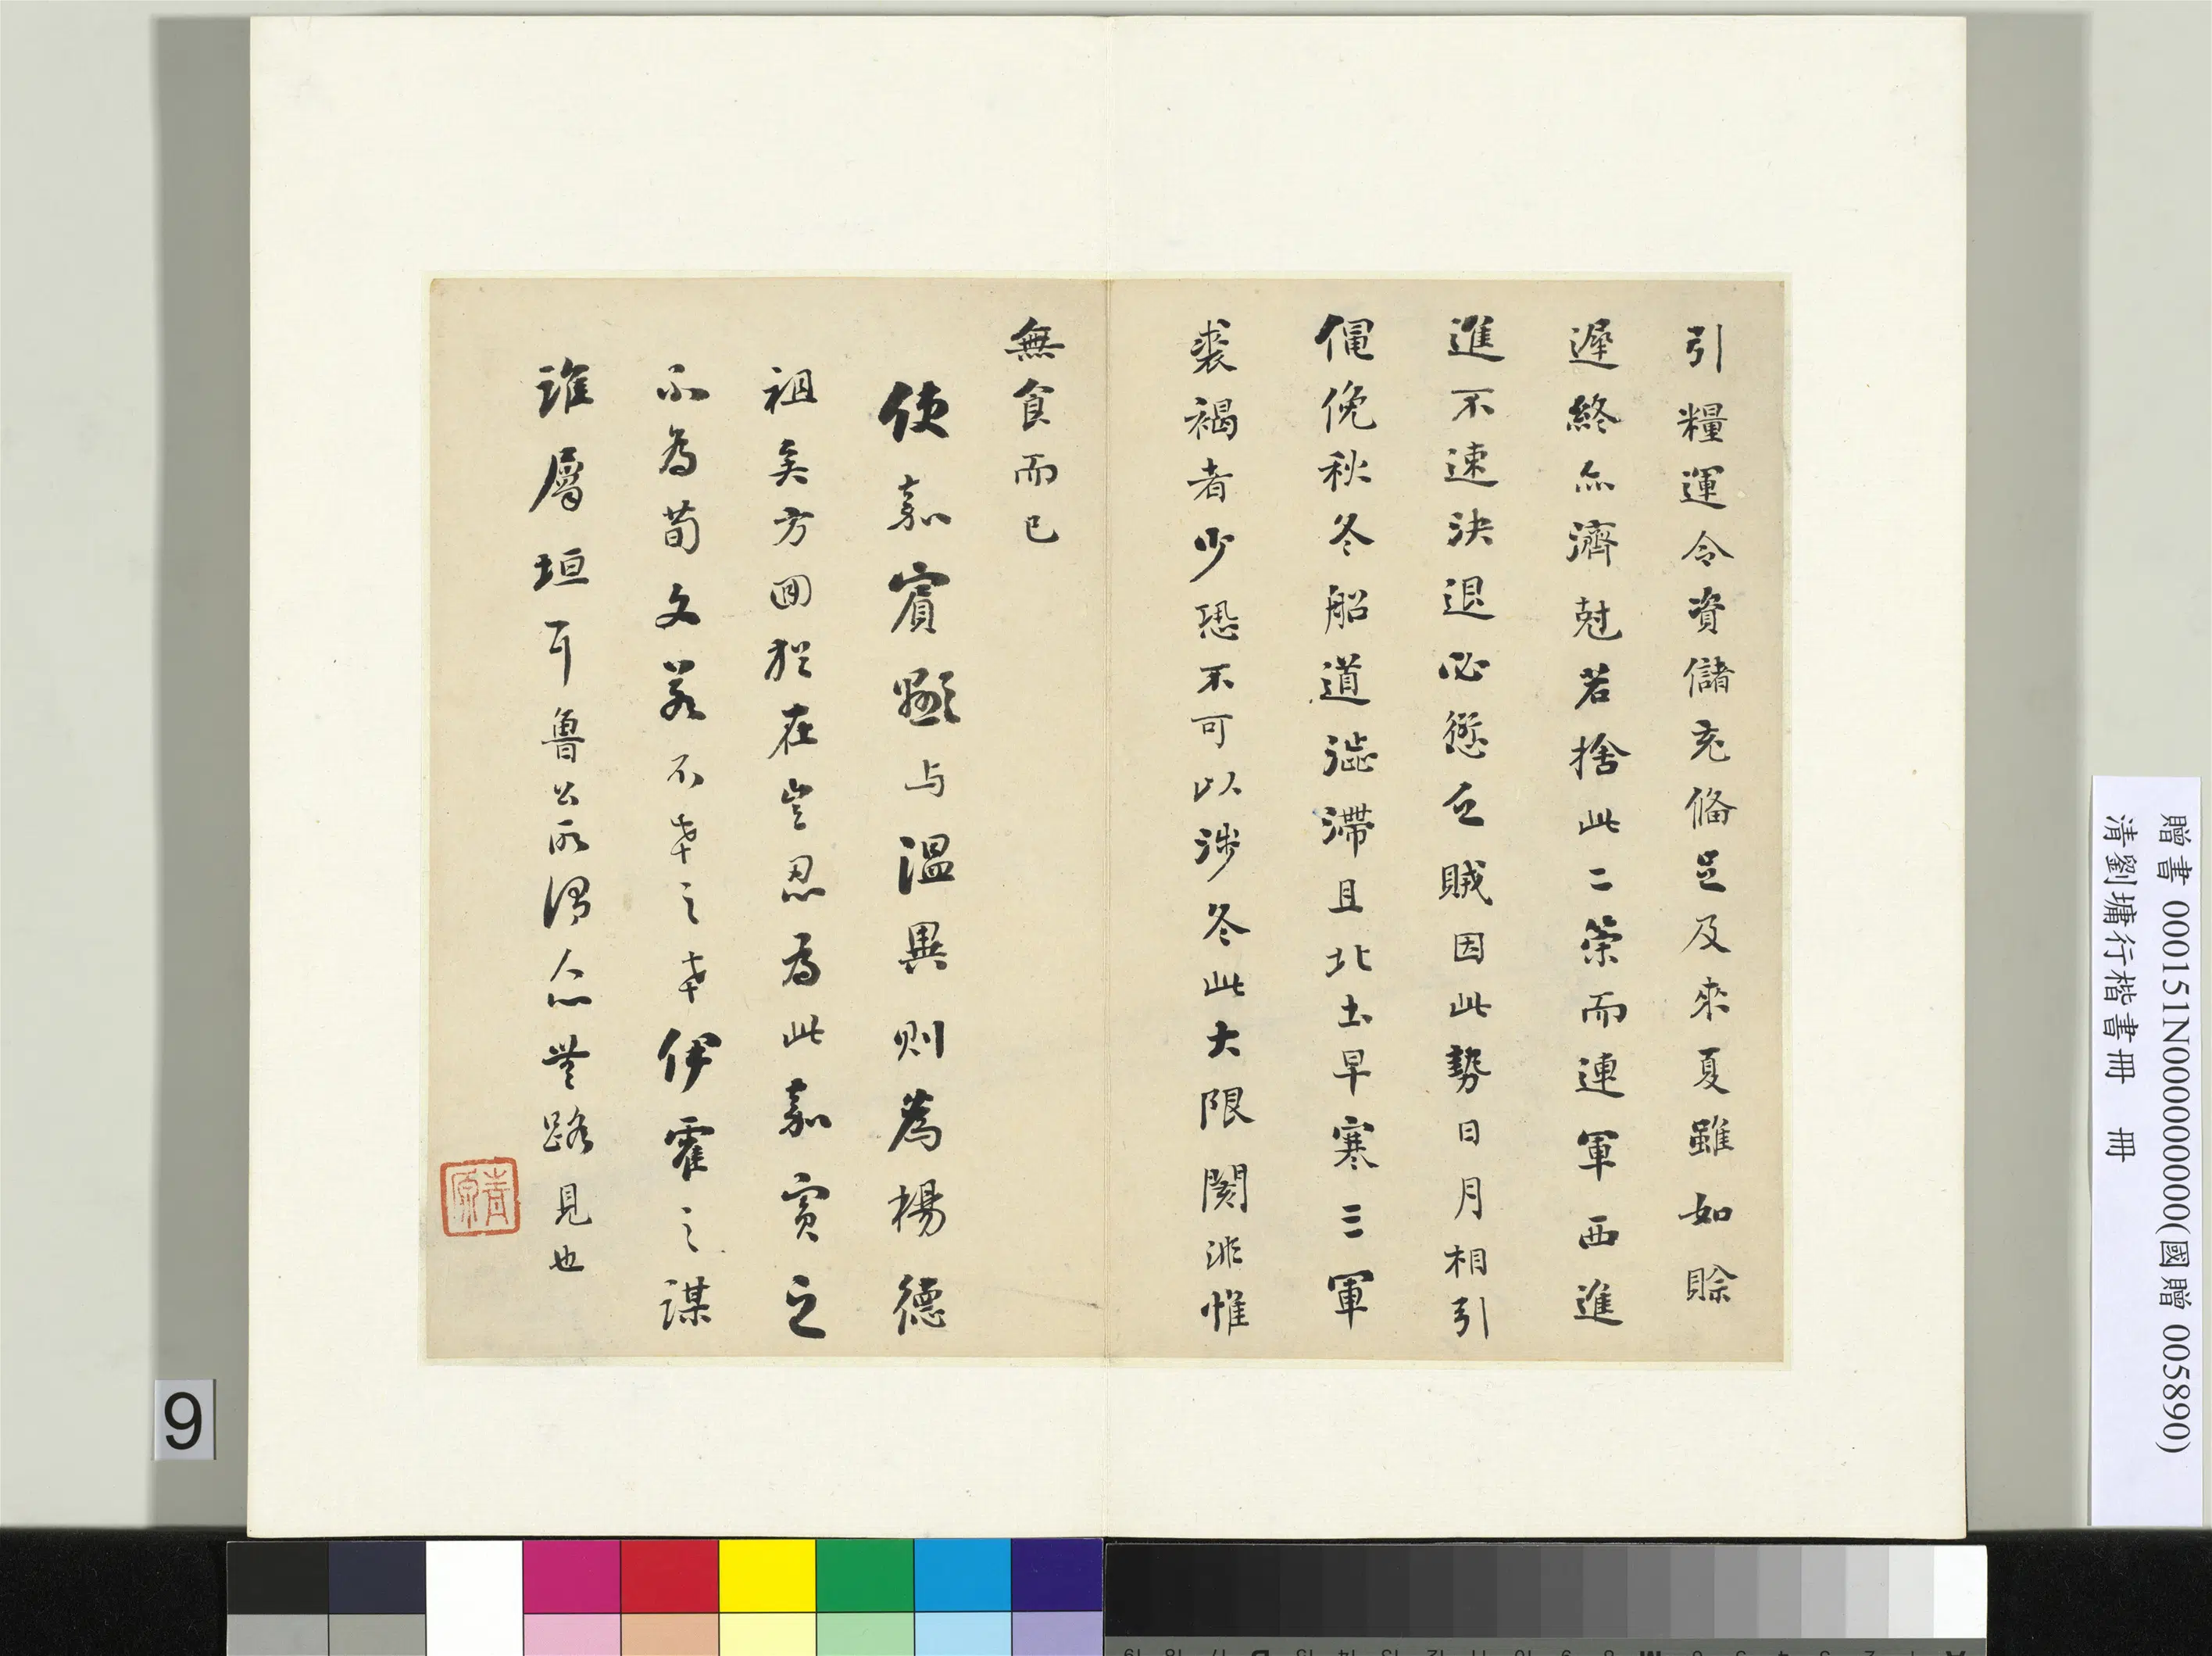 引糧運令資儲充備足及來夏雖如賒
遲終亦濟尅若捨此二策而連軍西進
進不速決退必愆乏賊因此勢日月相引
僶俛秋冬船道澁滯且北土早寒三軍
裘褐者少恐不可以涉冬此大限閡非惟
無食而已
使嘉賓顯与溫異則為楊德
祖矣方回猶在豈忍為此嘉賓之
不為荀文若不幸之幸伊霍之謀
誰屬垣耳魯公所謂人亦無路見也
贈書 000151N000000000(國贈 005890)
清劉墉行楷書冊 冊
9